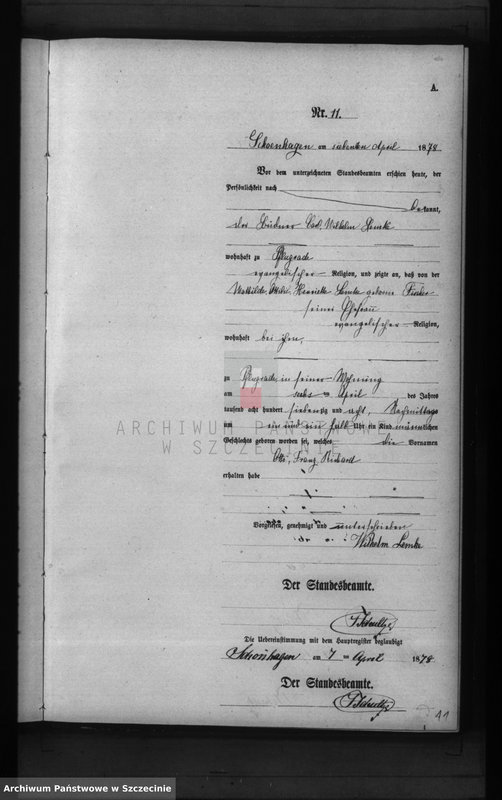 A.
Nr. 11.
Schoenhagen am siebenten April 1878
Vor dem unterzeichneten Standesbeamten erschien heute, der
Persönlichkeit nach
bekannt,
der Büdner Carl Wilhelm Lemke
wohnhaft zu Pflugrade
evangelischer Religion, und zeigte an, daß von der
Mathilde Henriette Lemke geborne
seiner Ehefrau
evangelischer Religion,
wohnhaft bei ihm,
zu Pflugrade, in seiner Wohnung
am sechs ten April des Jahres
tausend acht hundert siebenzig und acht, Nachmittags
um ein und ein halb Uhr ein Kind männlichen
Geschlechts geboren worden sei, welches die Vornamen
Otto, Franz, Richard
erhalten habe
Vorgelesen, genehmigt und unterschrieben
Wilhelm Lemke
Der Standesbeamte.
Die Uebereinstimmung mit dem Hauptregister beglaubigt
Schönhagen am 7 ten April 1878
Der Standesbeamte.
11
ARCHIWUM PAŃSTWOWE
W SZCZECINIE
Archiwum Państwowe w Szczecinie